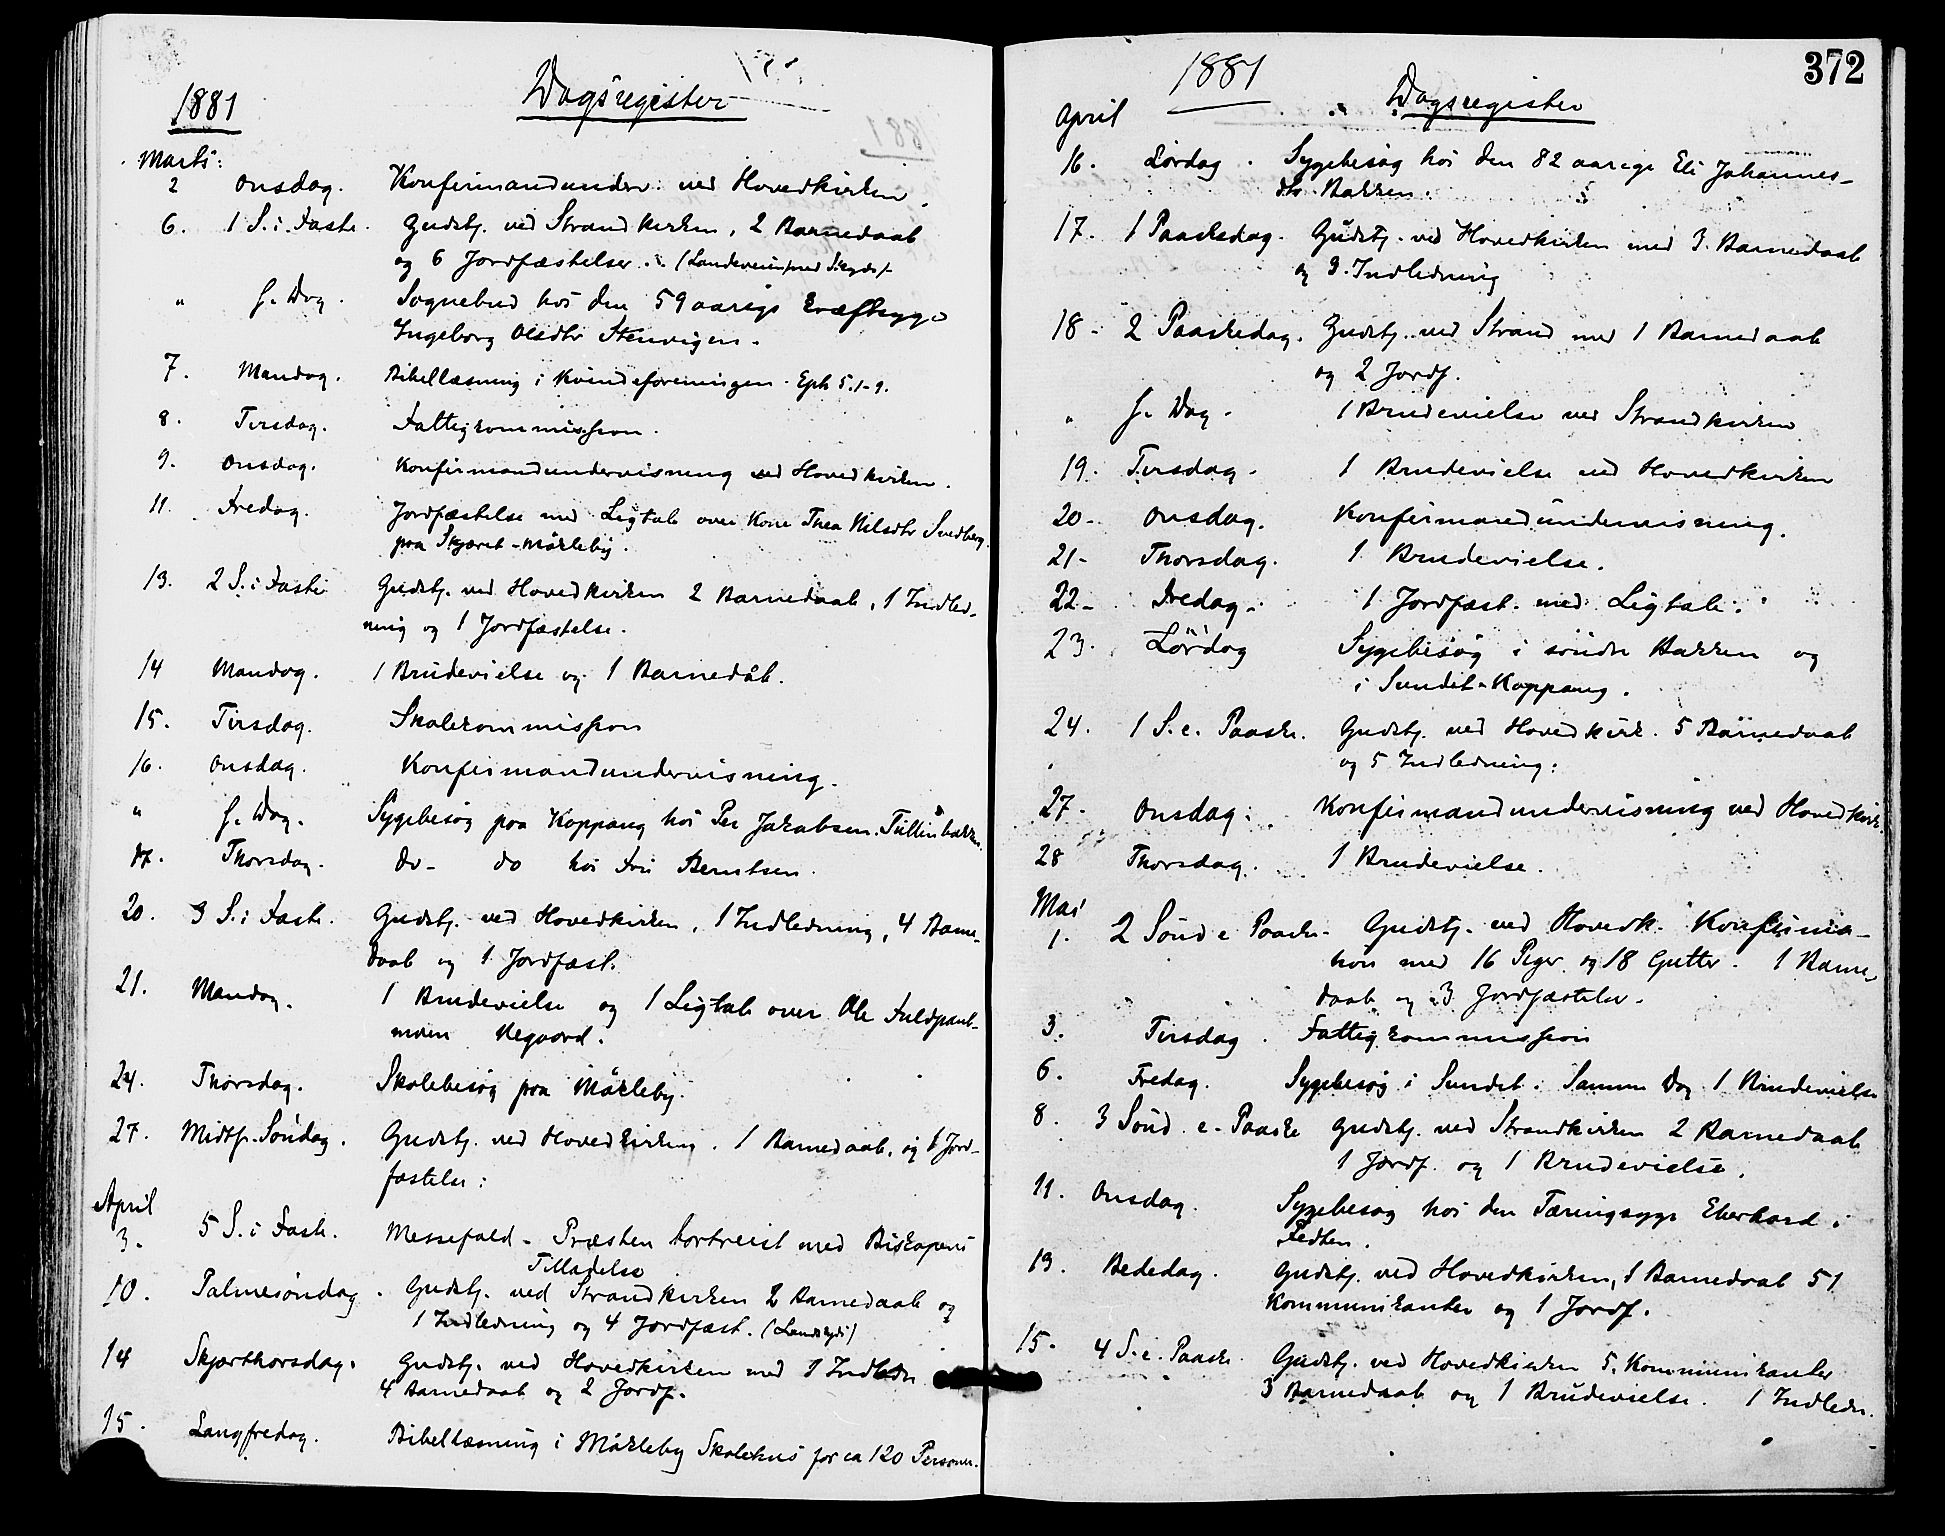 1881
Dagsregister
Marts:
2 Onsdag. Konfirmandunderv. ved Hovedkirken.
6. 1 S. i Faste. Gudstj. ved Strandkirken, 2 Barnedaab
og 6 Jordfæstelser.
" s. Dag. Sognebud hos den 59 aarige
Ingeborg Olsdtr Stenvigen.
7. Mandag. Bibellæsning i Kvindeforeningen. Eph 5.1-9.
8. Tirsdag. Fattigkommission.
9. Onsdag. Konfirmandundervisning ved Hovedkirken.
11. Fredag. Jordfæstelse med Ligtale over Kone Thea Nilsdtr Svedberg
paa Skjæret-Mökleby.
13. 2 S. i Faste Gudstj. ved Hovedkirken 2 Barnedaab, 1 Indled-
ning og 1 Jordfæstelse.
14 Mandag. 1 Brudevielse og 1 Barnedåb.
15. Tirsdag. Skolekommission
16. Onsdag. Konfirmandundervisning.
" s. Dag. Sygebesøg paa Koppang hos Per Jakobsen
17. Thorsdag. do- do hos Berntsen.
20. 3 S. i Faste. Gudstj. ved Hovedkirken, 1 Indledning, 4 Barne-
daab og 1 Jordfæst.
21. Mandag. 1 Brudevielse og 1 Ligtale over Ole
moen Negaard.
24. Thorsdag. Skolebesøg paa Mökleby.
27. Midtf. Söndag. Gudstj. ved Hovedkirken. 1 Barnedaab, og 1 Jord-
fæstelse:
April
3. 5 S. i Faste. Messefald - Præsten bortreist med Biskopens
Tilladelse
10. Palmesöndag. Gudstj. ved Strandkirken 2 Barnedaab og
1 Indledning og 4 Jordfæst.
14 Skjærthorsdag. Gudstj. ved Hovedkirken med 1 Indledn
4 Barnedaab og 2 Jordf.
15. Langfredag. Bibellæsning i Mökleby Skolehus for ca 120 Personer.
372
1881
Dagsregister
April
16. Lördag. Sygebesøg hos den 82 aarige Eli Johannes-
dtr Bakken.
17. 1 Paaskedag. Gudstj. ved Hovedkirken med 3 Barnedaab
og 3 Indledning
18- 2 Paaskedag. Gudstj. ved Strand med 1 Barnedaab
og 2 Jordf.
" s. Dag. 1 Brudevielse ved Strandkirken
19. Tirsdag. 1 Brudevielse ved Hovedkirken
20- Onsdag. Konfirmandundervisning.
21- Thorsdag. 1 Brudevielse.
22- Fredag. 1 Jordfæst. med Ligtale.
23. Lördag Sygebesøg i söndre Bakken og
i Sundet-Koppang.
24. 1 S. e. Paaske. Gudstj. ved Hovedkirk. 5 Barnedaab
og 5 Indledning:
27- Onsdag. Konfirmandundervisning ved Hovedkirk.
28 Thorsdag. 1 Brudevielse.
Mai
1. 2 Sönd e Paaske- Gudstj. ved Hovedk. Konfirma-
tion med 16 Piger og 18 Gutter. 1 Barne-
daab og 3 Jordfæstelse.
3. Tirsdag. Fattigkommission
6. Fredag. Sygebesøg i Sundet. Samme Dag 1 Brudevielse
8. 3 Sönd. e. Paaske Gudstj. ved Strandkirken 2 Barnedaab
1 Jordf. og 1 Brudevielse.
11. Onsdag. Sygebesøg hos den Tæringssyge Eberhard i
13. Bededag. Gudstj. ved Hovedkirken, 1 Barnedaab 51
Kommunikanter og 1 Jordf.
15. 4 S. e. Paaske. Gudstj. ved Hovedkirken 5. Kommunikanter
3 Barnedaab og 1 Brudevielse. 1 Indledn.